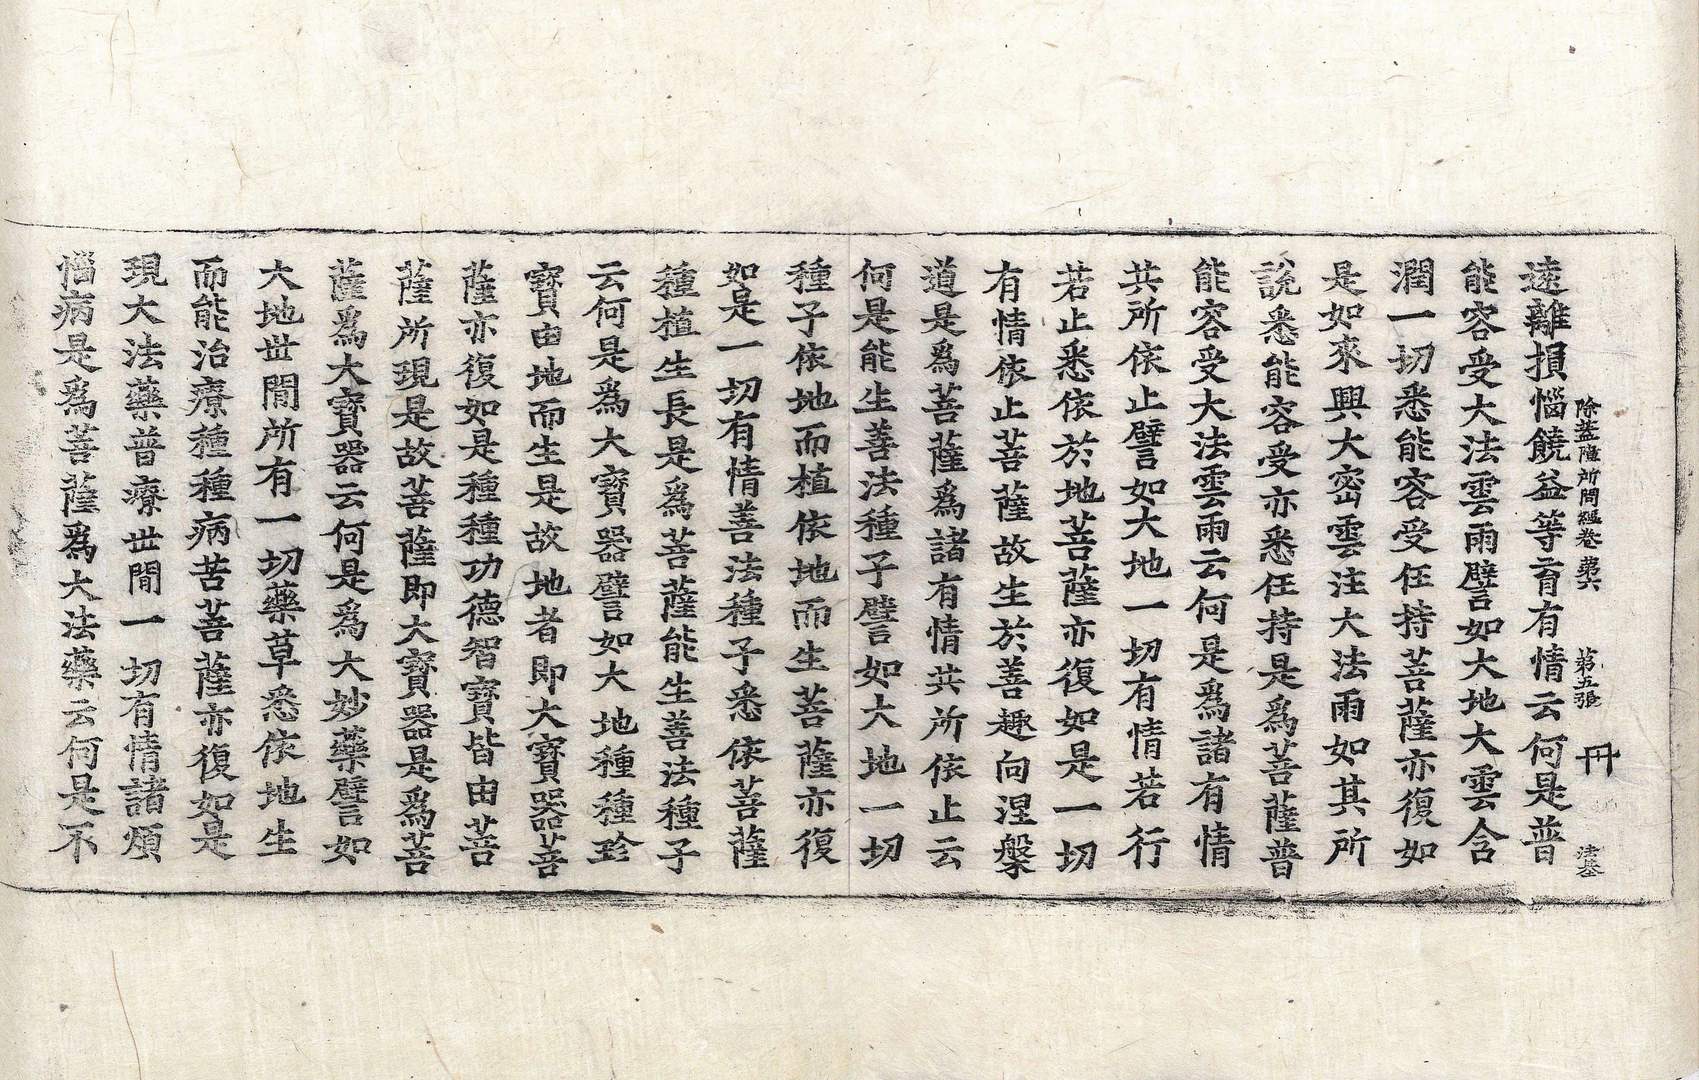 除蓋障所問經卷第六 第五張 冊 法基
遠離損惱饒益等育有情云何是普
能容受大法雲雨譬如大地大雲含
潤一切悉能容受任持菩薩亦復如
是如來興大密雲注大法雨如其所
說悉能容受亦悉任持是爲菩薩普
能容受大法雲雨云何是爲諸有情
共所依止譬如大地一切有情若行
若止悉依於地菩薩亦復如是一切
有情依止菩薩故生於善趣向涅槃
道是爲菩薩爲諸有情共所依止云
何是能生善法種子譬如大地一切
種子依地而植依地而生菩薩亦復
如是一切有情善法種子悉依菩薩
種植生長是爲菩薩能生善法種子
云何是爲大寶器譬如大地種種珍
寶由地而生是故地者即大寶器菩
薩亦復如是種種功德智寶皆由菩
薩所現是故菩薩即大寶器是爲菩
薩爲大寶器云何是爲大妙藥譬如
大地世間所有一切藥草悉依地生
而能治療種種病苦菩薩亦復如是
現大法藥普療世間一切有情諸煩
惱病是爲菩薩爲大法藥云何是不